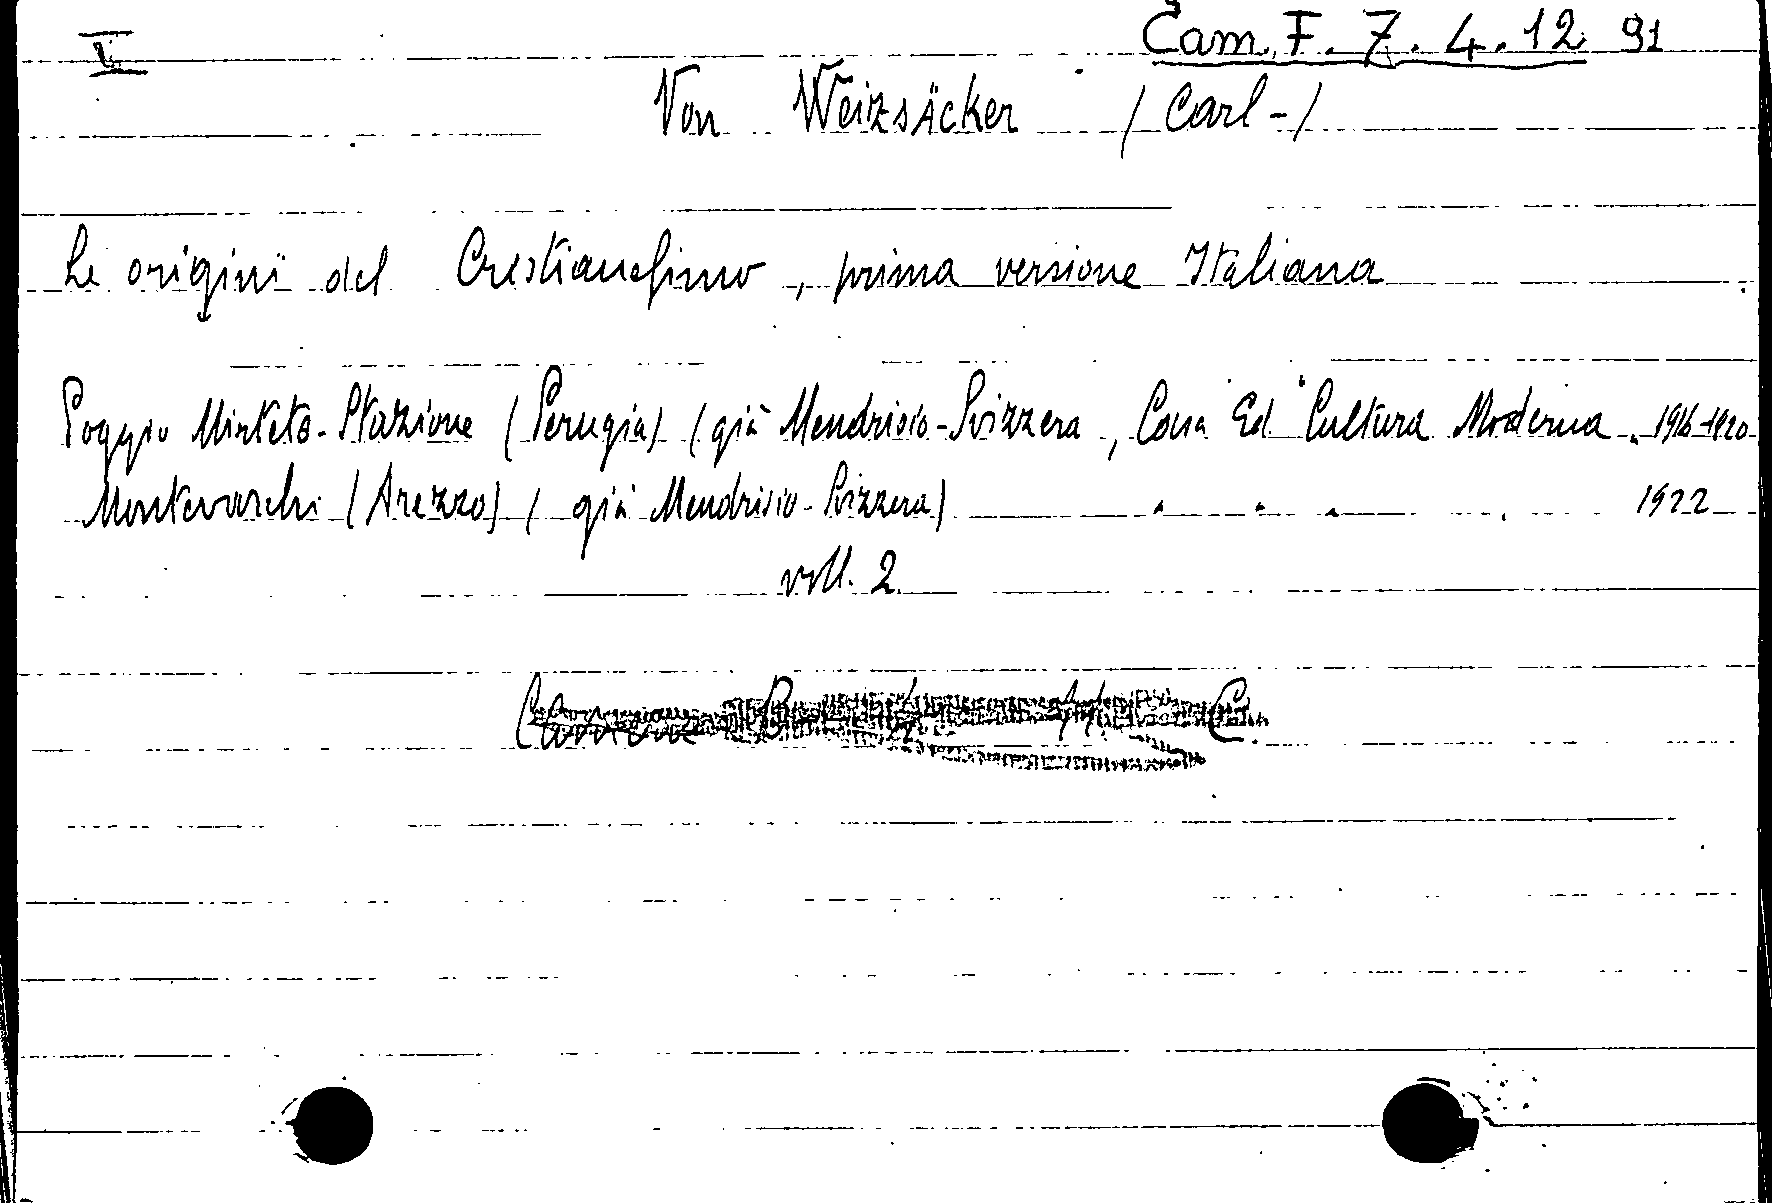 V
Cam. F. 7. 4. 12 91
Von Weizsäcker (Carl-)
Le origini del Cristianesimo, prima versione Italiana
Poggio Mirteto-Stazione (Perugia) (già Mendrisio-Svizzera, Casa Ed. Cultura Moderna. 1916-1920
Montevarchi (Arezzo) (già Mendrisio-Svizzera) " " " 1922
voll. 2